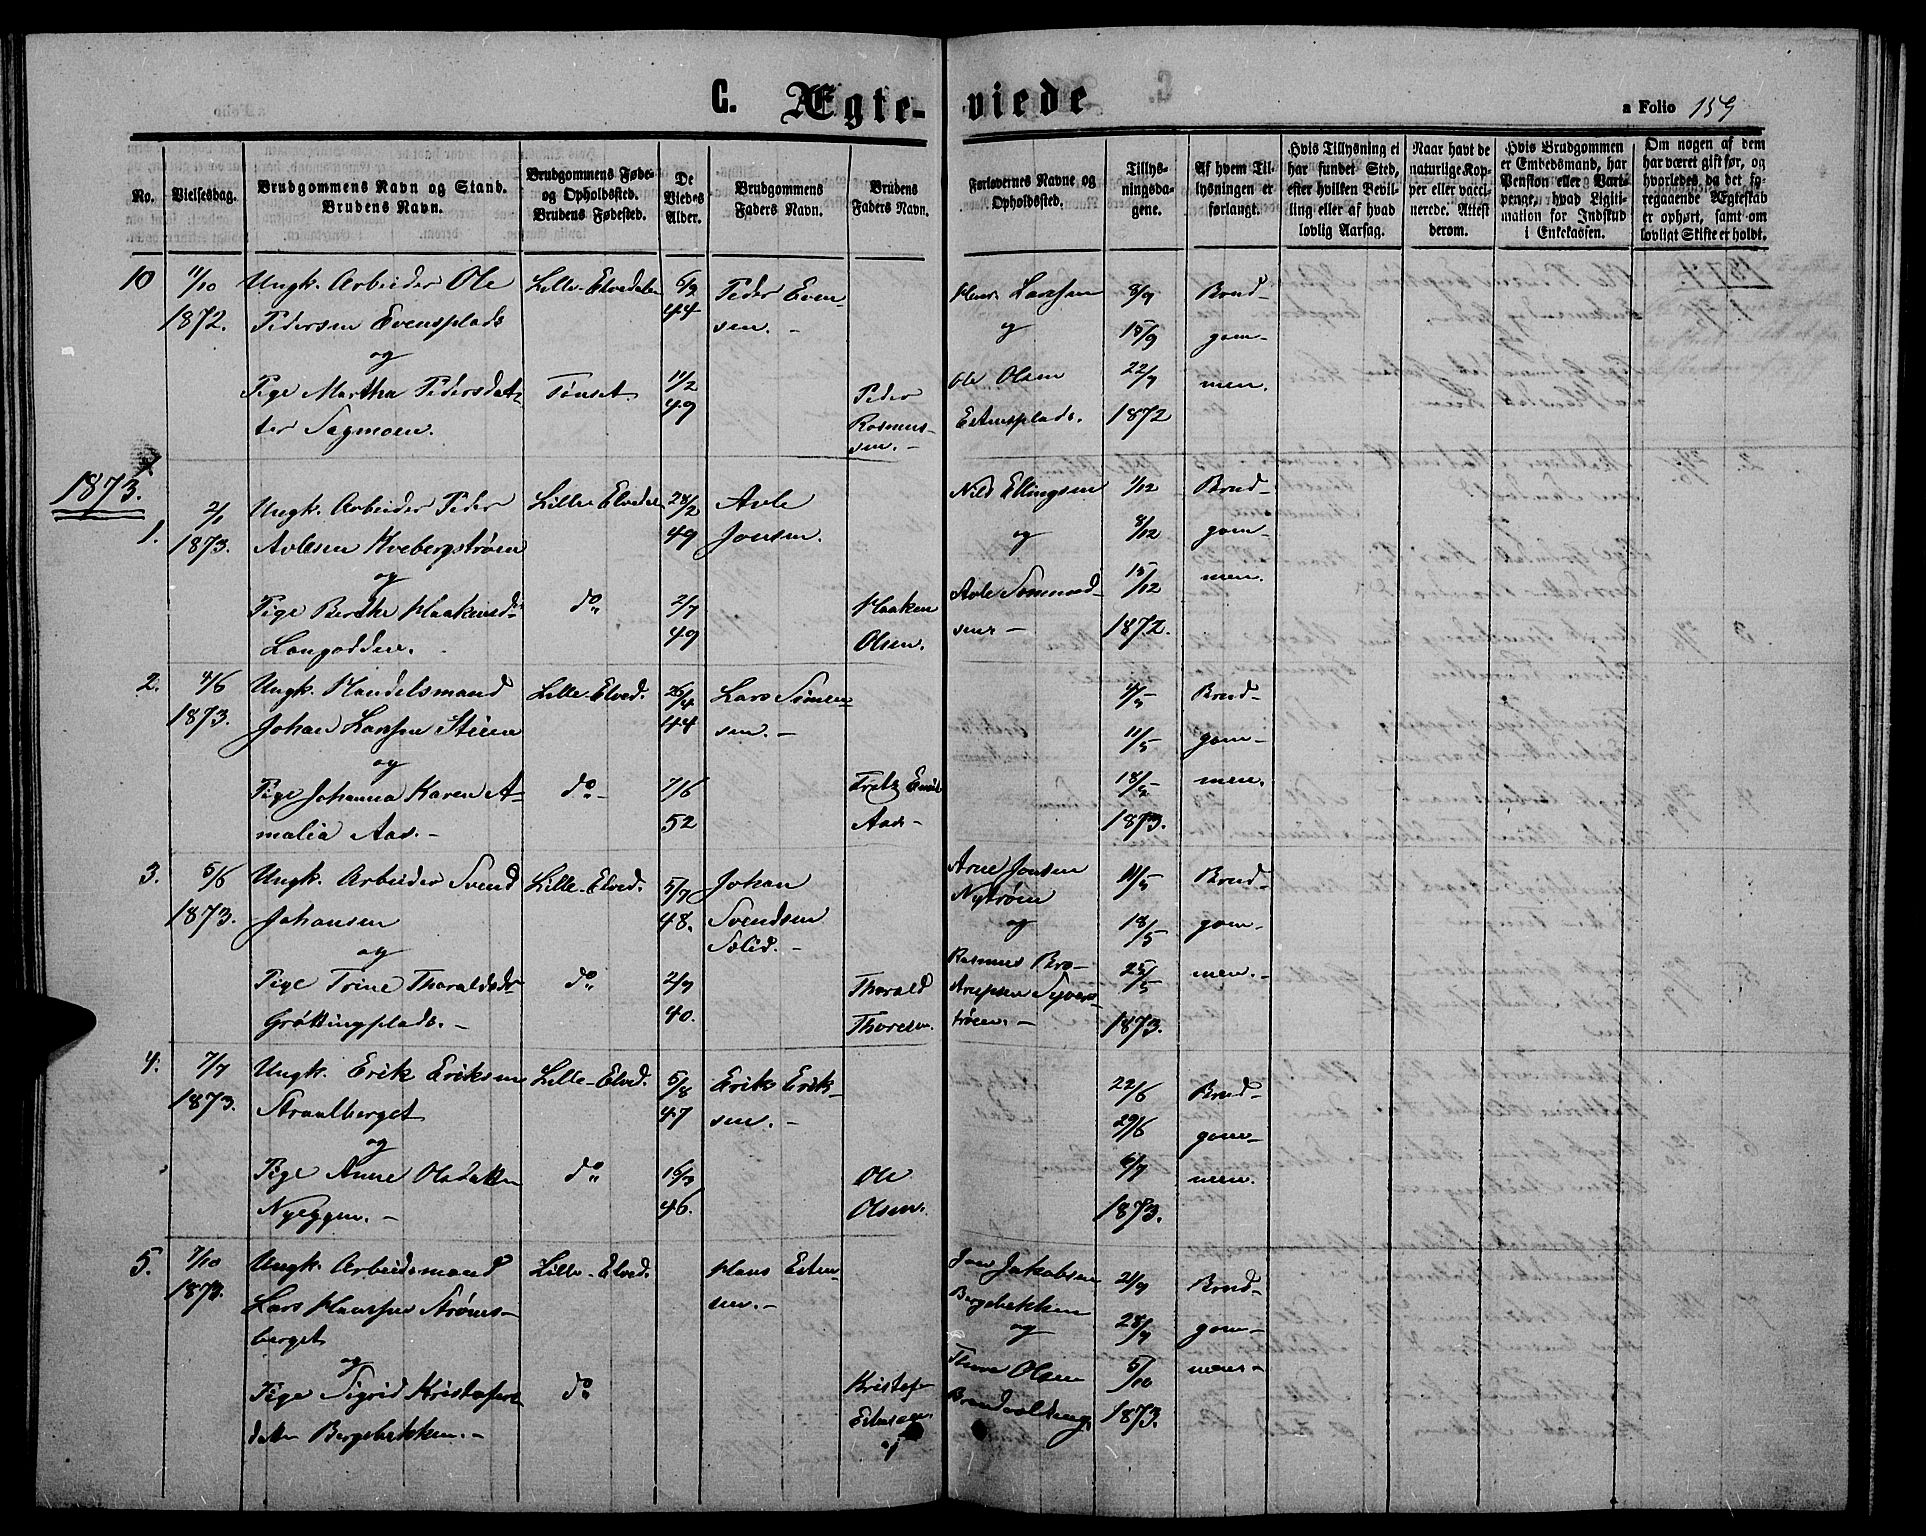 C. Ægte-viede
a Folio 159
No.
Vielsesdag.
Brudgommens Navn og Stand.
Brudens Navn.
Brudgommens Føde-
og Opholdssted.
Brudens Fødested.
De
Viedes
Alder.
Brudgommens
Faders Navn.
Brudens
Faders Navn.
Forlovernes Navne og
Opholdssted.
Tillys-
ningsda-
gene.
Af hvem Til-
lysningen er
forlangt.
Hvis Tillysning ei
har fundet Sted,
efter hvilken Bevil-
ling eller af hvad
lovlig Aarsag.
Naar havt de
naturlige Kop-
per eller vacci-
nerede. Attest
derom.
Hvis Brudgommen
er Embedsmand, har
Pension eller Vart-
penge, hvad Ligiti-
mation for Indskud
i Enkekassen.
Om nogen af dem
har været gift før, og
hvorledes da det fo-
regaaende Ægteskab
er ophørt, samt om
lovligt Skifte er holdt.
10
11/10
1872.
Ungk. Arbeider Ole
Pedersen Evensplads
og
Pige Martha Pedersdat-
ter Sagmoen.
Lille-Elvedalen
Tønset.
44
11/2
49
Peder Even-
sen. -
Peder
Rasmus-
sen. -
Larssen
og
Ole Olsen
Estensplads.
8/9
15/9
22/9
1872
Brud-
gom-
men.
1873.
1.
2/1
1873.
Ungk. Arbeider Peder
Avlesen Kvebergstrøen
og
Pige Berthe Haakensd.
Langodden.
Lille-Elvedal
do
28/2
49
2/7
49
Avle
Jonsen.
Haaken
Olsen.
Nils Ellingsen
og
Avle Simmend-
sen -
1/12
8/12
15/12
1872.
Brud-
gom-
men.
2.
4/6
1873.
Ungk. Handelsmand
Johan Larssen Steien
og
Pige Johanna Karen A-
malia Aas. -
Lille-Elved.
do -
26/4
44
7/6
52
Lars Simen-
sen. -
Fritz Emil
Aas -
4/5
11/5
18/5
1873.
Brud-
gom-
men.
3.
5/6
1873.
Ungk. Arbeider Svend
Johansen
og
Pige Trine Thoraldsdr
Grøttingplads. -
Lille-Elved.
do
5/7
48.
40.
Johan
Svendsen
Solid. -
Thorald
Thoresen.
Arne Jonsen
Nystrøen
og
Rasmus Bro-
trøen. -
11/5
18/5
25/5
1873.
Brud-
gom-
men. -
4.
7/7
1873.
Ungk. Erik Eriksen
Straalberget
og
Pige Anne Olsdatter
Nyeggen. -
Lille-Elved.
do
5/8
47
46.
Erik Erik-
sen. -
Ole
Olsen.
22/6
29/6
6/7
1873.
Brud-
gom-
men.
5.
7/10
1873.
Ungk. Arbeidsmand
Lars Hanssen Strøms-
berget
og
Pige Sigrid Kristofers-
datter Bergebekken. -
Lille-Elved.
do
Hans Esten-
sen. -
Kristof-
Estensen
Jon Jakobsen
Bergebekken
og
Thore Olsen
Brandvoldeng
21/9
28/9
5/10
1873.
Brud-
gom-
men -